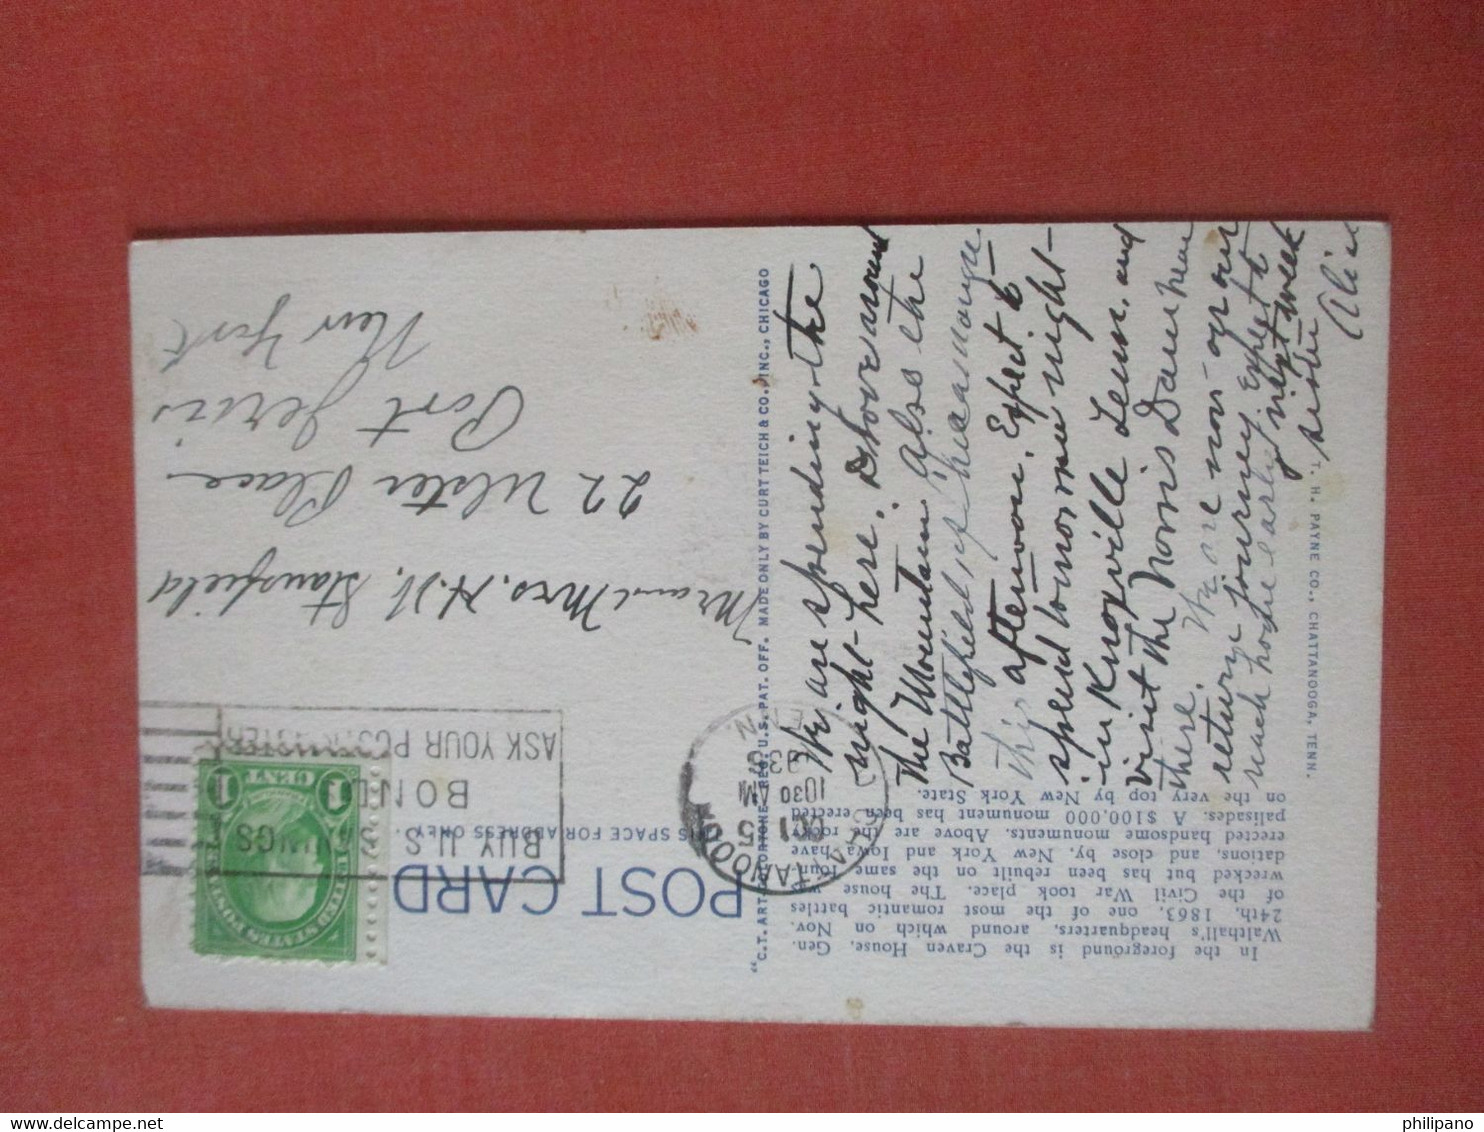 In the foreground is the Craven House, Gen.
Walthall's headquarters, around which on Nov.
24th, 1863, one of the most romantic battles
of the Civil War took place. The house was
wrecked but has been rebuilt on the same foun-
dations, and close by, New York and Iowa have
erected handsome monuments. Above are the rocky
palisades. A $100,000 monument has been erected
on the very top by New York State.
We are spending the
night here. Drove around
the Mountain also the
Battlefield of Chicamauga
this afternoon. Expect to
spend tomorrow night
in Knoxville Tenn. and
visit the Norris Dam near
there. We are now on our
return journey. Expect to
reach home early next week
Alice
POST CARD
THIS SPACE FOR ADDRESS ONLY
CHATTANOOGA
OCT 5
10 30 AM
TENN.
BUY U.S. SAVINGS
BONDS
ASK YOUR POSTMASTER
UNITED STATES POSTAGE
1 CENT 1
Mr and Mrs. H. W. Stansfield
22 Ulster Place
Port Jervis
New York
"C.T. ART-COLORTONE" REG. U.S. PAT. OFF. MADE ONLY BY CURT TEICH & CO., INC., CHICAGO
T. H. PAYNE CO., CHATTANOOGA, TENN.
philipano
www.delcampe.net